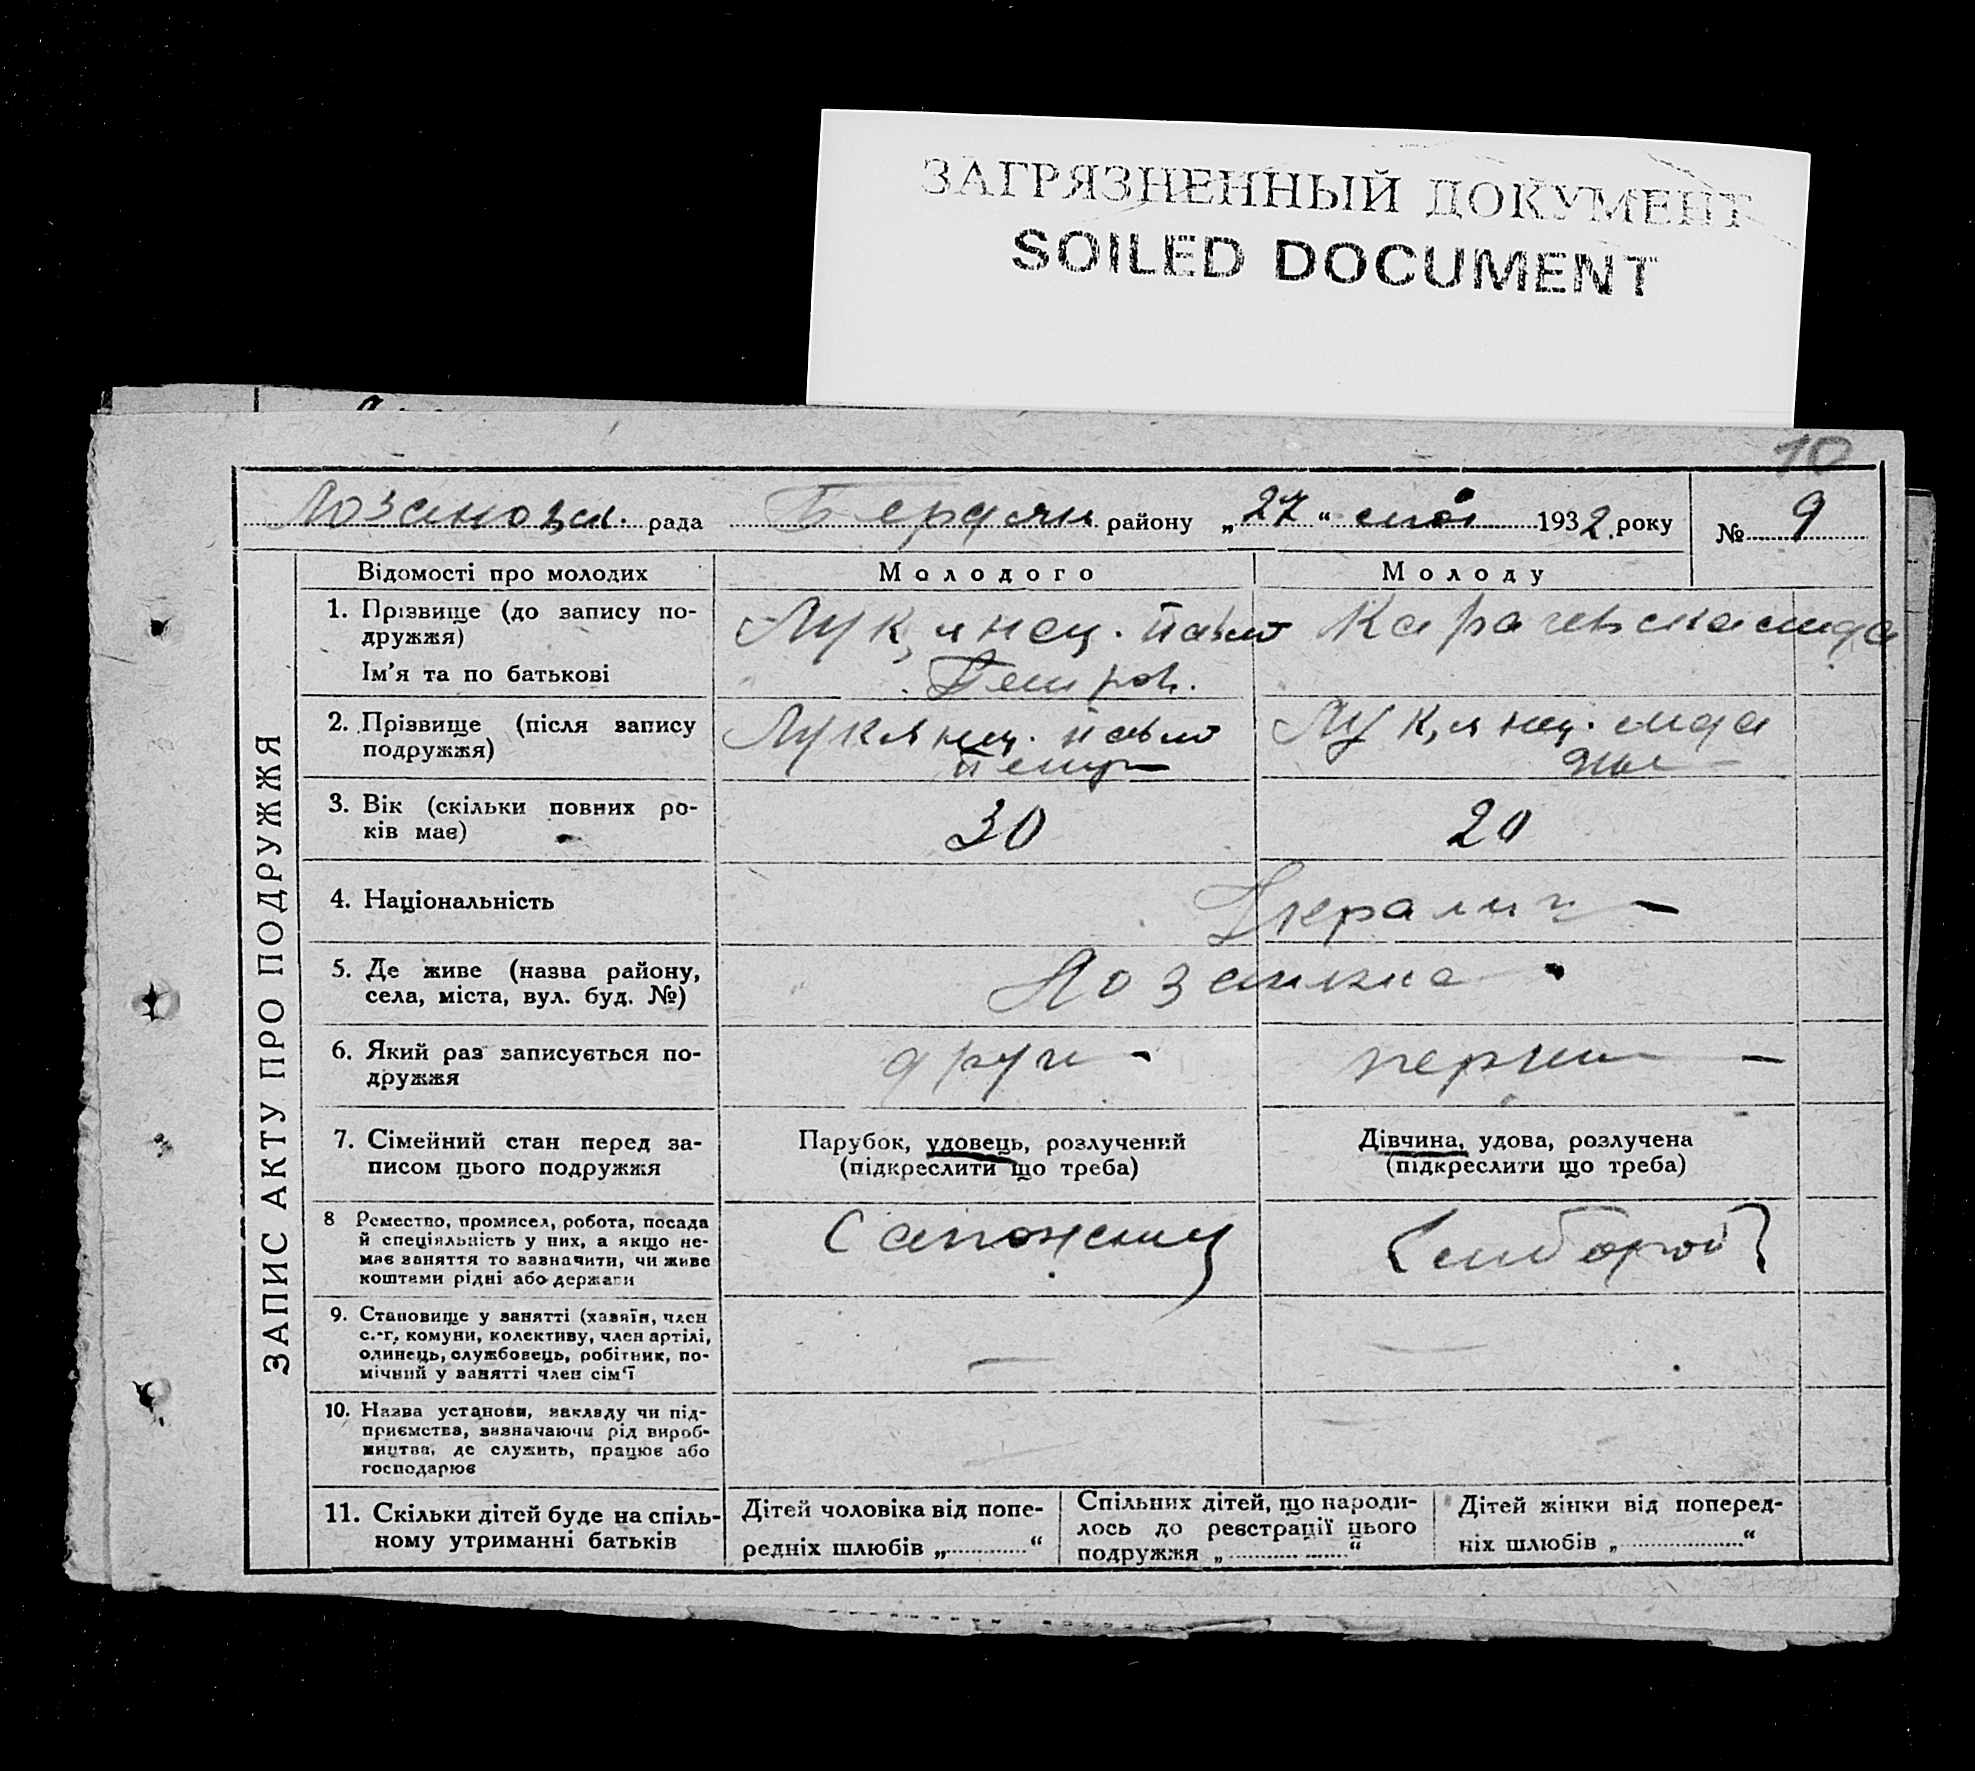 ЗАГРЯЗНЕННЫЙ ДОКУМЕНТ
SOILED DOCUMENT
10
рада Бердян району „27“ 1932 року № 9
ЗАПИС АКТУ ПРО ПОДРУЖЖЯ
Відомості про молодих
Молодого
Молоду
1. Прізвище (до запису по-
дружжя)
Ім'я та по батькові
Лук,янец. Павло
Петров.
Карачевська
2. Прізвище (після запису
подружжя)
Лукянец. Павло
Петр
Лук,янец.
3. Вік (скільки повних ро-
ків має)
30
20
4. Національність
5. Де живе (назва району,
села, міста, вул. буд. №)
6. Який раз записується по-
дружжя
други -
перши -
7. Сімейний стан перед за-
писом цього подружжя
Парубок, удовець, розлучений
(підкреслити що треба)
Дівчина, удова, розлучена
(підкреслити що треба)
8 Ремество, промисел, робота, посада
й спеціяльність у них, а якщо не-
має заняття то зазначити, чи живе
коштами рідні або держави
9. Становище у занятті (хазяїн, член
с.-г. комуни, колективу, член артілі,
одинець, службовець, робітник, по-
мічний у занятті член сім'ї
10. Назва установи, закладу чи під-
приємства, зазначаючи рід вироб-
ництва, де служить, працює або
господарює
11. Скільки дітей буде на спіль-
ному утриманні батьків
Дітей чоловіка від попе-
редніх шлюбів „ “
Спільних дітей, що народи-
лось до реєстрації цього
подружжя „ “
Дітей жінки від поперед-
ніх шлюбів „ “